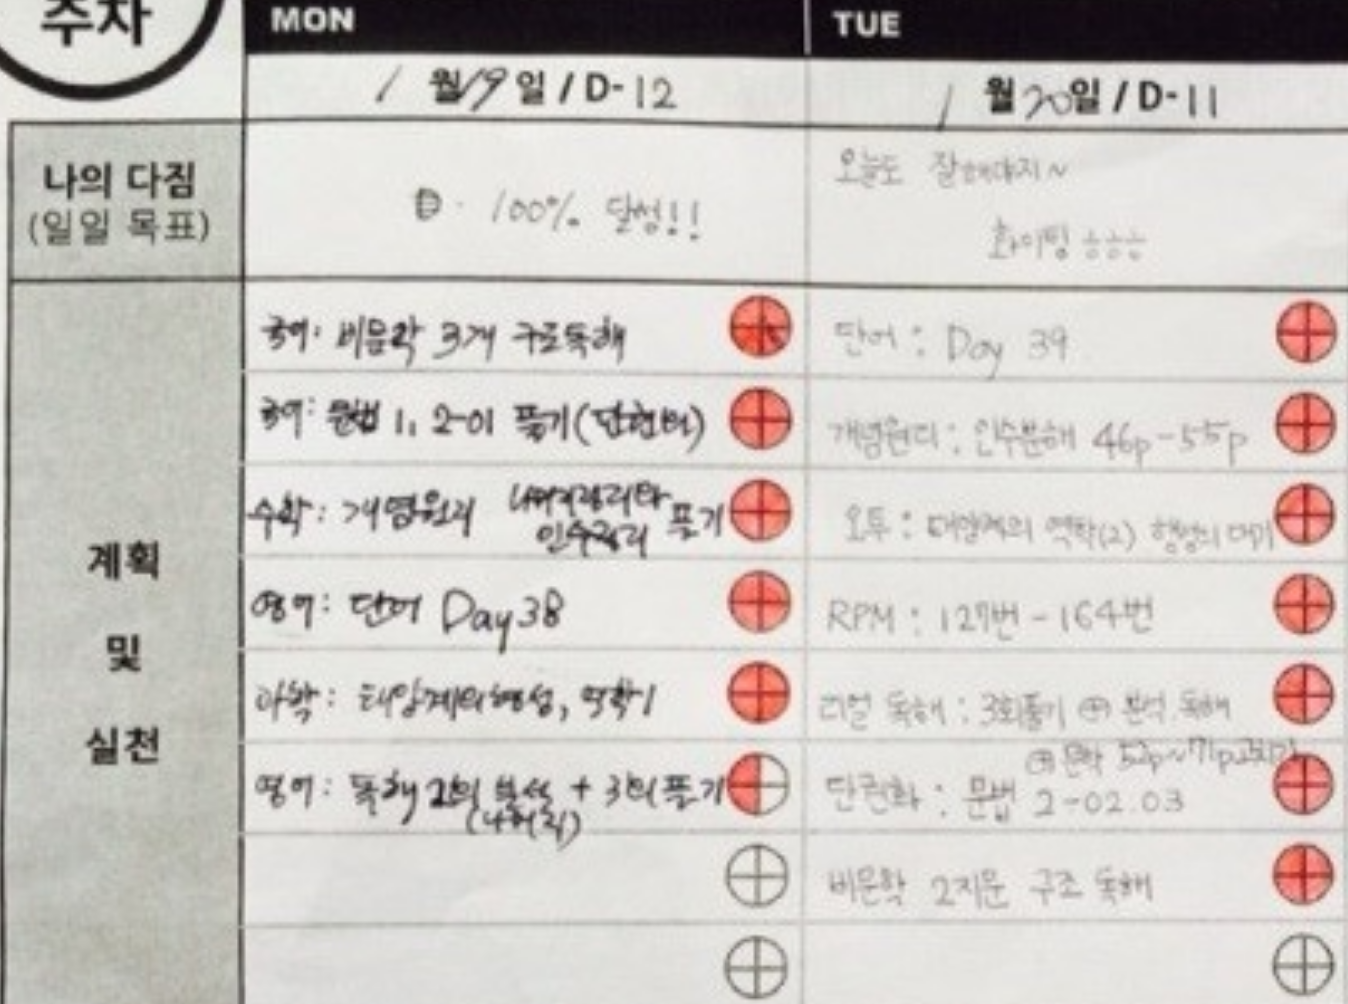 주차
MON
TUE
1월 19일 / D-12
1월 20일 / D-11
나의 다짐
(일일 목표)
100% 달성!!
오늘도 잘해야지~
화이팅 ㅎㅎㅎ
계획
및
실천
국어: 비문학 3개 구조독해
국어: 문법 1, 2-01 풀기(단권화)
수학: 개념원리 나머지정리 인수정리 풀기
영어: 단어 Day 38
과학: 태양계의 행성, 역학1
영어: 독해 2회 분석 + 3회 풀기
(나머지)
단어: Day 39
개념원리: 인수분해 46p-55p
오투: 태양계의 역학(2) 행성의 대기
RPM: 127번-164번
리얼 독해: 3회풀기 분석.독해
문학 52p~71p
단권화: 문법 2-02.03
비문학 2지문 구조 독해